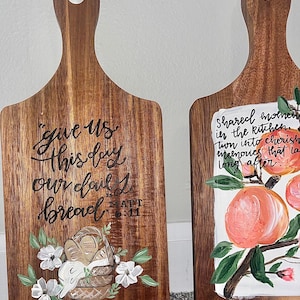 "give us
this day
our daily
bread"
MATT
6:11
Shared moments
in the kitchen
turn into cherished
memories that la
long after.